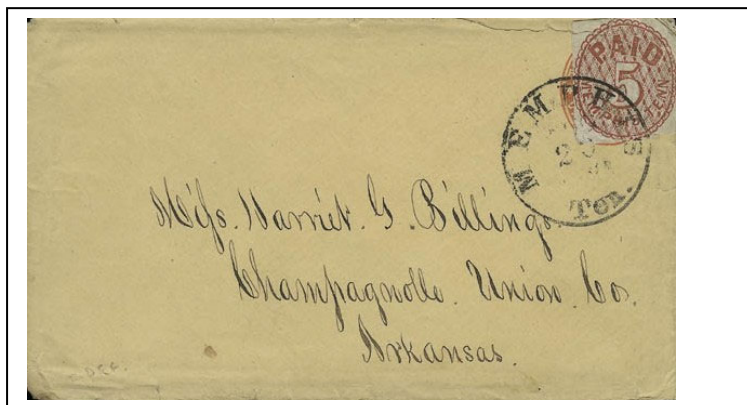 PAID
5
MEMPHIS TENN.
MEMPHIS
Ten.
Miss. Harriet. G. Billings
Champagnolle. Union Co.
Arkansas.